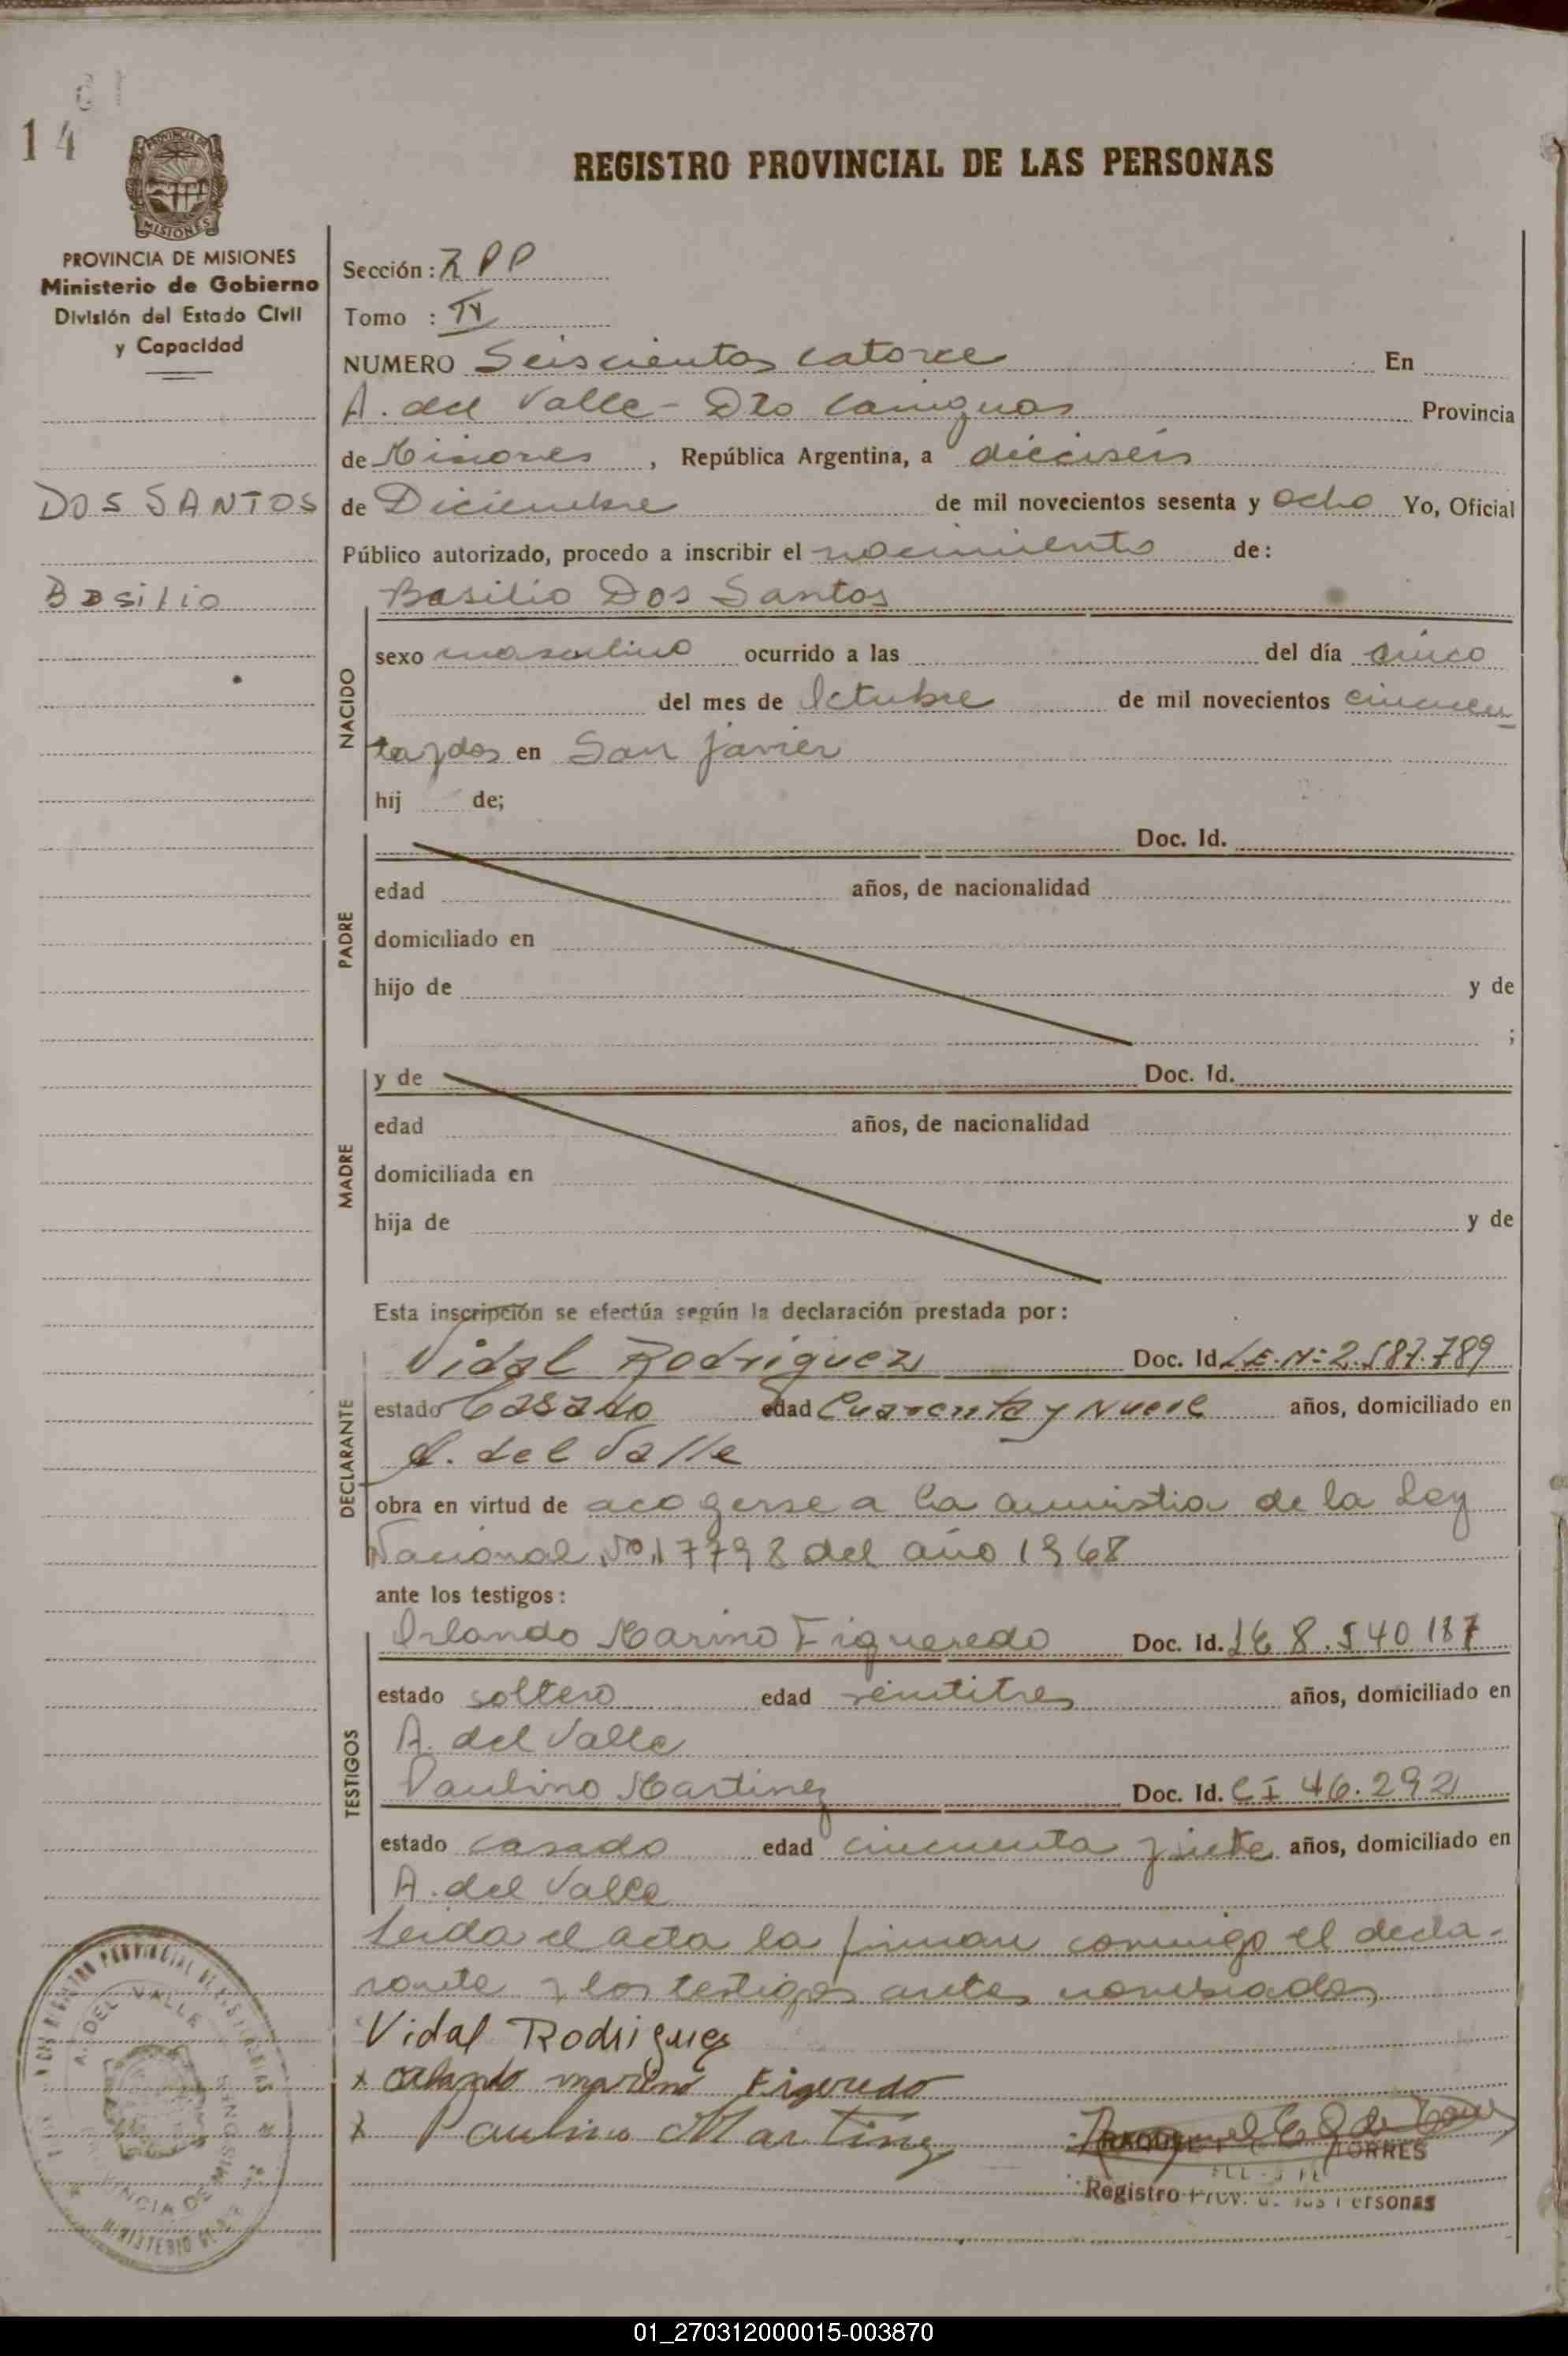 14
REGISTRO PROVINCIAL DE LAS PERSONAS
PROVINCIA DE MISIONES
Ministerio de Gobierno
División del Estado Civil
y Capacidad
DOS SANTOS
Basilio
Sección: RPP
Tomo : IV
NUMERO Seiscientos catorce En
A. del Valle - Dto Cainguas Provincia
de Misiones , República Argentina, a dieciseis
de Diciembre de mil novecientos sesenta y ocho Yo, Oficial
Público autorizado, procedo a inscribir el nacimiento de:
Basilio Dos Santos
NACIDO
sexo masculino ocurrido a las del día cinco
del mes de Octubre de mil novecientos cincuen
ta y dos en San Javier
hij de;
PADRE
Doc. Id.
edad años, de nacionalidad
domiciliado en
hijo de y de
;
MADRE
y de Doc. Id.
edad años, de nacionalidad
domiciliada en
hija de y de
Esta inscripción se efectúa según la declaración prestada por:
DECLARANTE
Vidal Rodriguez Doc. Id L.E. Nº 2.587.789
estado Casado edad Cuarenta y Nueve años, domiciliado en
A. del Valle
obra en virtud de acogerse a la amnistia de la Ley
Nacional Nº 17798 del año 1968
ante los testigos:
TESTIGOS
Orlando Marino Figueredo Doc. Id. LE 8.540187
estado soltero edad veintitres años, domiciliado en
A. del Valle
Paulino Martinez Doc. Id. CI 46.292
estado casado edad cincuenta y siete años, domiciliado en
A. del Valle
Leida el acta la firman conmigo el decla-
rante y los testigos antes nombrados
Vidal Rodriguez
x Orlando marino Figeredo
x Paulino Martinez
TORRES
Registro Prov. de las Personas
A. DEL VALLE
01_270312000015-003870